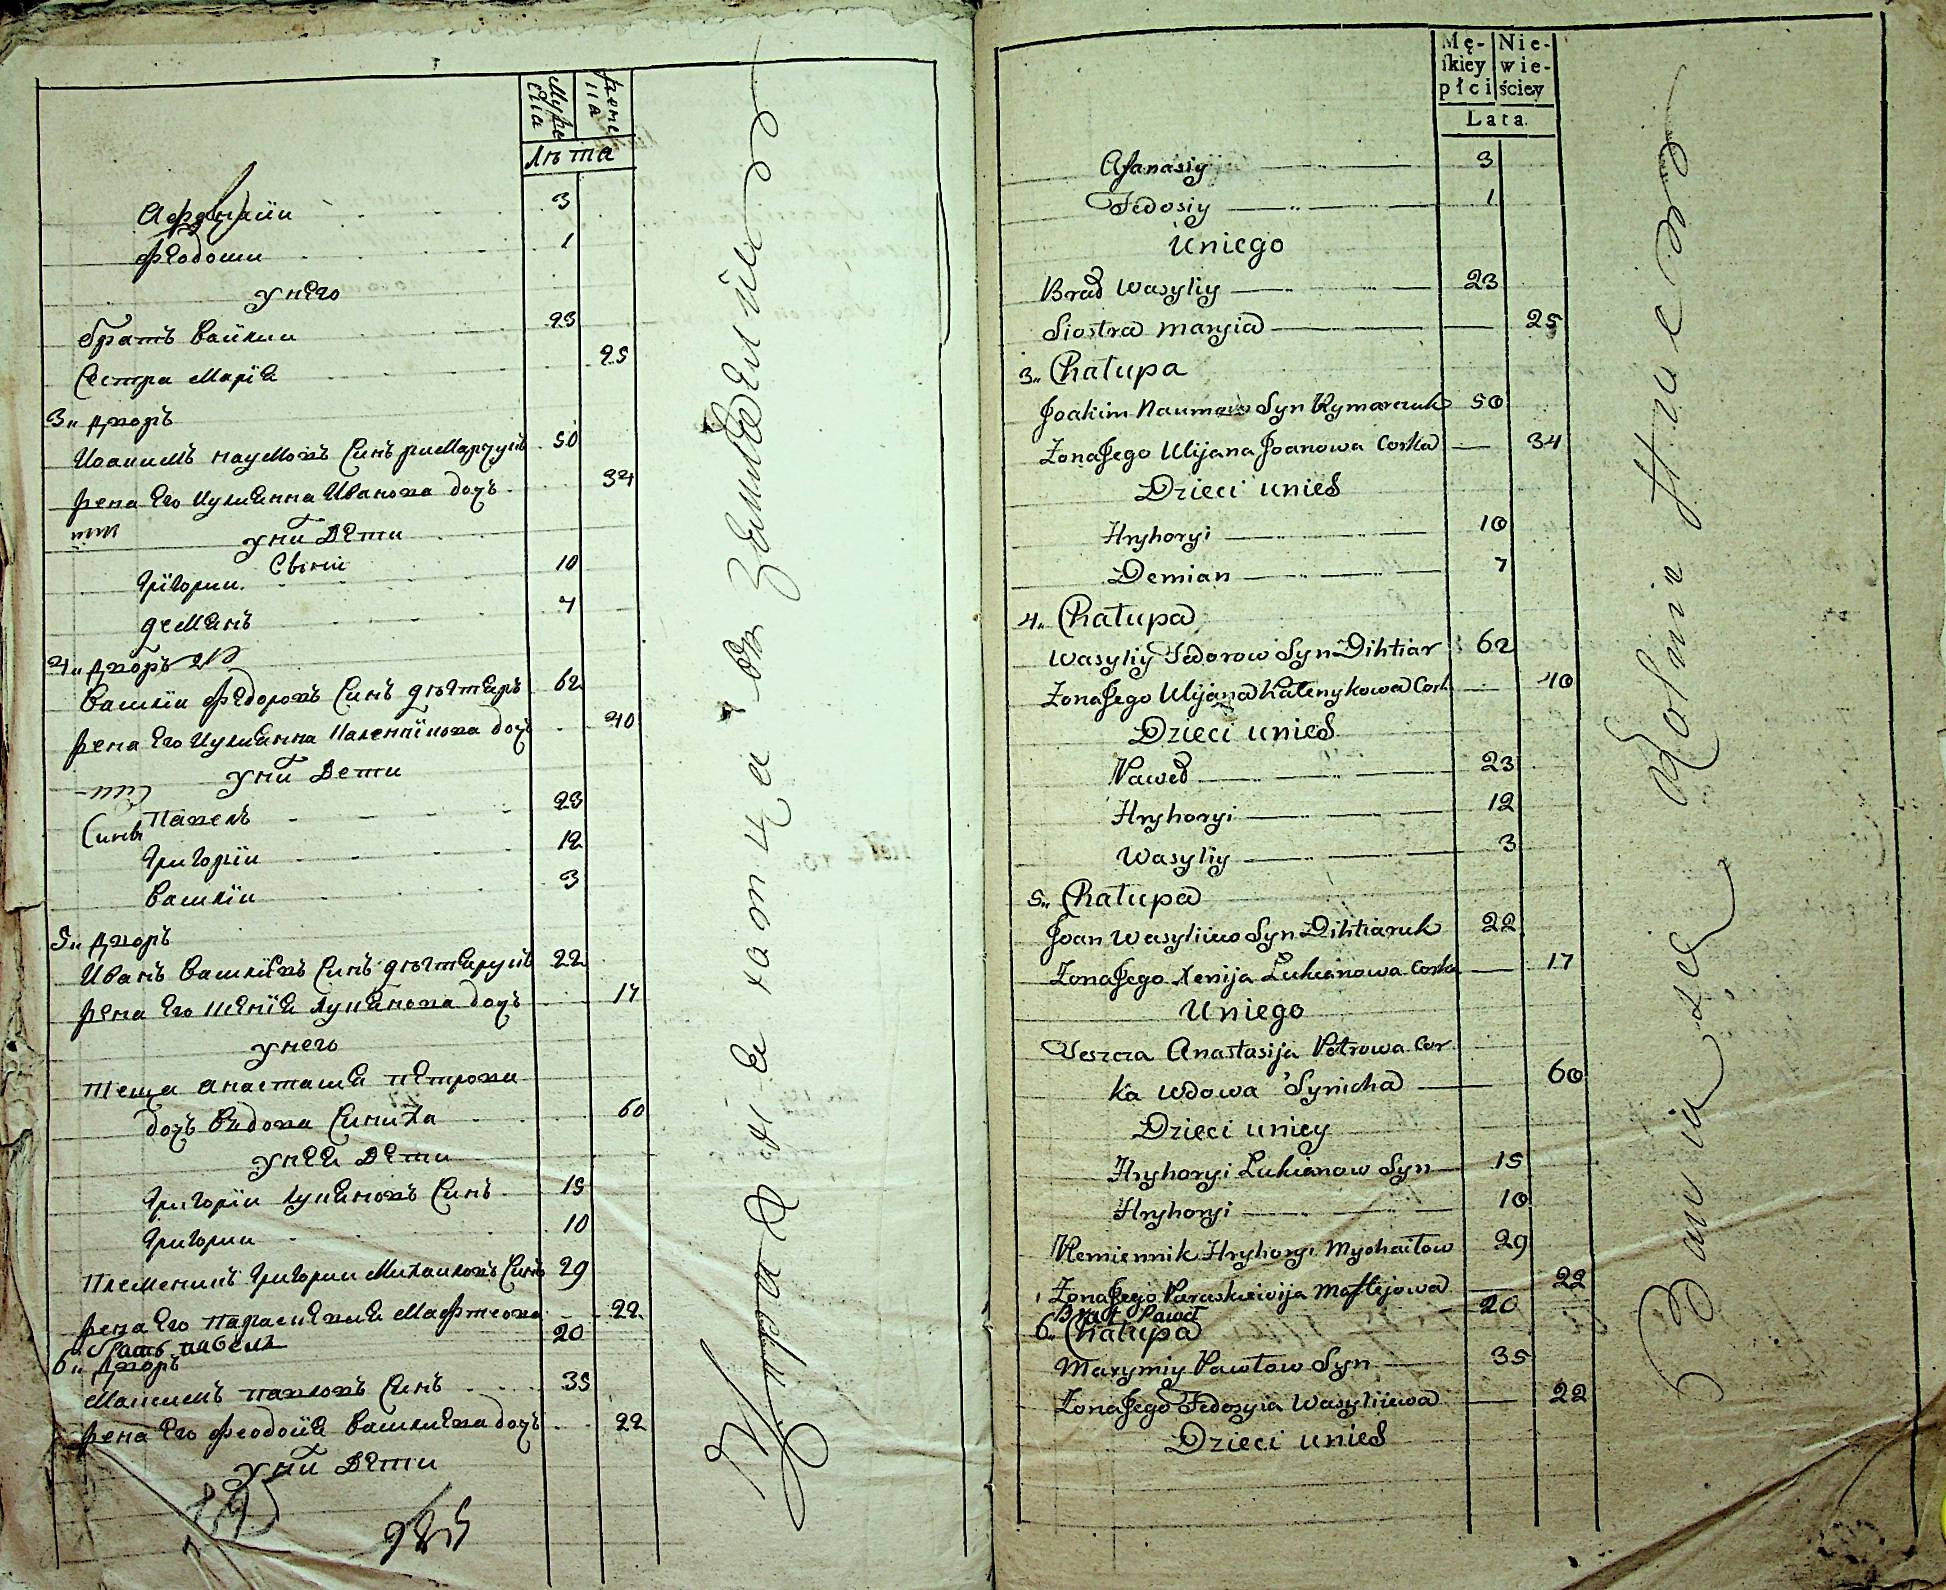 Муже
ска
жене
на
Лѣта
Афанаіи 3
Феодоси 1
у него
братъ Василии 23
Сестра Марія 25
3„ Дворъ
Иоакимъ Наумовъ Синъ Римарчукъ 50
жена Его Иулиянна Иванова дочь 34
у ни Дети
Сынiи
Григории 10
Демянъ 7
4„ Дворъ
Василіи Федоровъ Синъ Дегтяръ 62
жена Его Иулиянна Каленикова дочь 40
у ни Дети
Сины Павелъ 23
Григоріи 12
Василіи 3
5„ Дворъ
Иванъ Василіевъ Синъ Дегтярукъ 22
жена Его Ксенія Лукянова дочь 17
у него
Теща Анастасия Петрова
дочь Вдова Синиха 60
у неи Дети
Григоріи Лукяновъ Синъ 15
Григории 10
Племеникъ Григории Михаиловъ Синъ 29
жена Его Параскевия Мафтеова 22
братъ павелъ 20
6„ Дворъ
Максимъ Павловъ Синъ 35
жена Его Феодосія Василиева дочь 22
у ни Дети
985
Mę-
skiey
płci
Nie-
wie-
ściey
Lata.
Afanasiy 3
Fedosiy 1
U niego
Brad Wasyliy 23
Siostra Maryia 25
3„ Chałupa
Joakim Naumow Syn Rymarczuk 50
Żona Jego Ulijana Joanowa Corka 34
Dzieci u nieh
Hryhoryi 10
Demian 7
4„ Chałupa
Wasyliy Fedorow Syn Dihtiar 62
Żona Jego Ulijana Kalenykowa Cork 40
Dzieci u nieh
Paweł 23
Hryhoryi 12
Wasyliy 3
5„ Chałupa
Joan Wasyliiew Syn Dihtiaruk 22
Żona Jego Xenija Lukianowa Corka 17
U niego
Teszcza Anastasija Petrowa Cor
ka Wdowa Synicha 60
Dzieci u niey
Hryhoryi Lukianow Syn 15
Hryhoryi 10
Plemiennik Hryhoryi Mychaiłow 29
Żona Jego Paraskiewija Maftejowa 22
Brat Paweł 20
6„ Chałupa
Maxymiy Pawłow Syn 35
Żona Jego Fedosyia Wasyliiewa 22
Dzieci u nieh